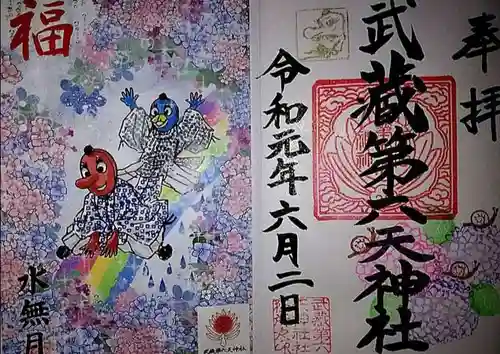 奉拝
武蔵第六天神社
令和元年六月二日
福
水無月